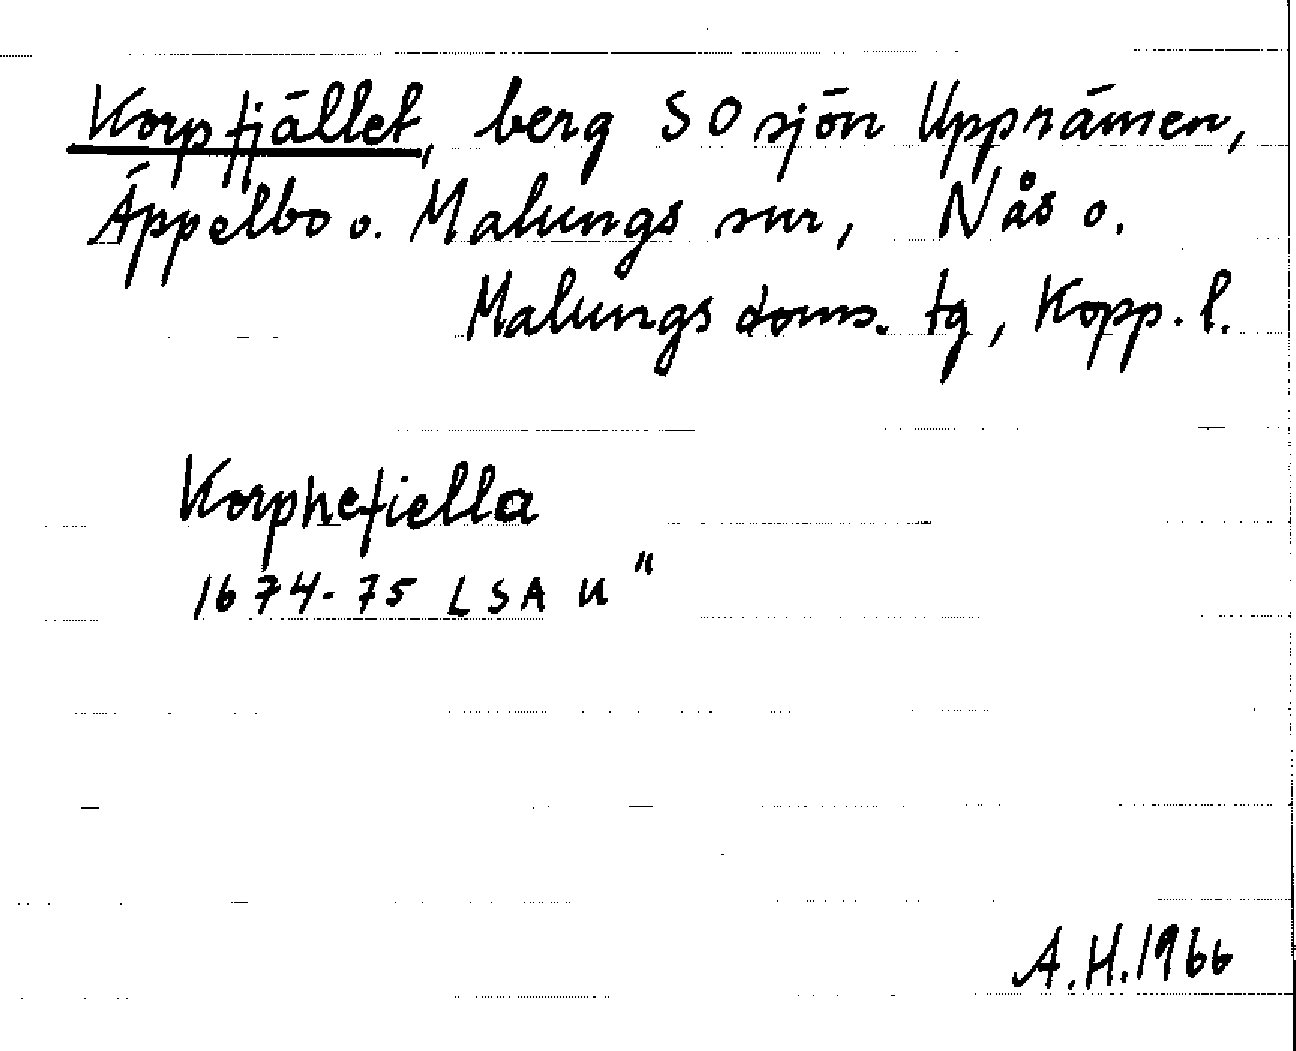 Korpfjället, berg SO sjön Uppnämen,
Äppelbo o. Malungs snr, Nås o.
Malungs doms. tg, Kopp. l.
Korphefiella
1674-75 LSA u"
A.H.1966